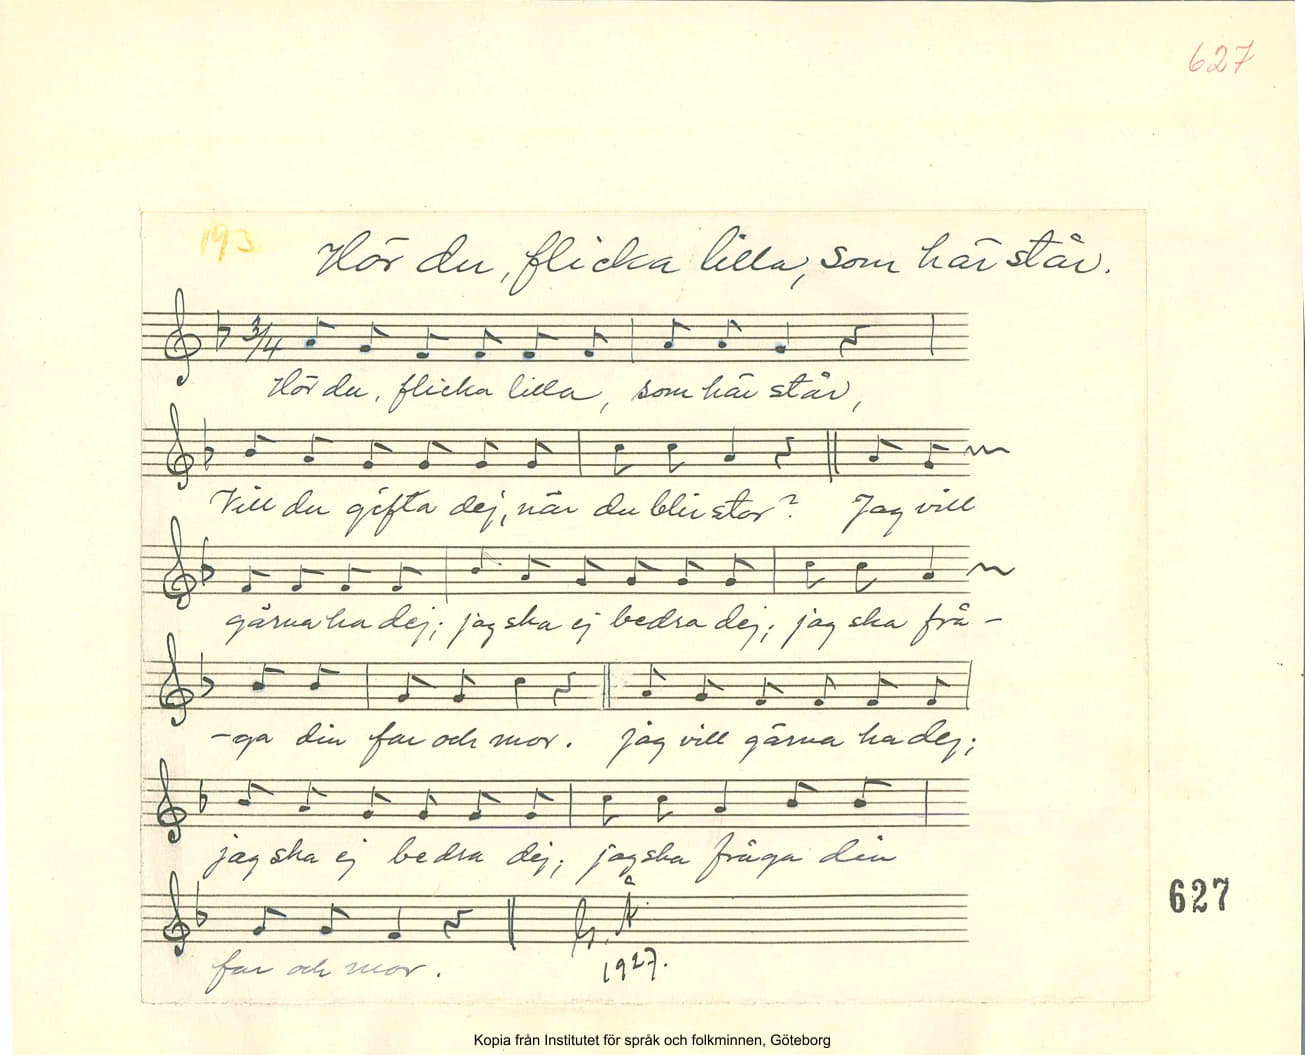 627
193
Hör du, flicka lilla, som här står.
3/4
Hör du, flicka lilla, som här står,
Vill du gifta dej, när du blir stor? Jag vill
gärna ha dej; jag ska ej bedra dej; jag ska frå-
-ga din far och mor. jag vill gärna ha dej;
jag ska ej bedra dej; jag ska fråga din
far och mor.
1927.
627
Kopia från Institutet för språk och folkminnen, Göteborg